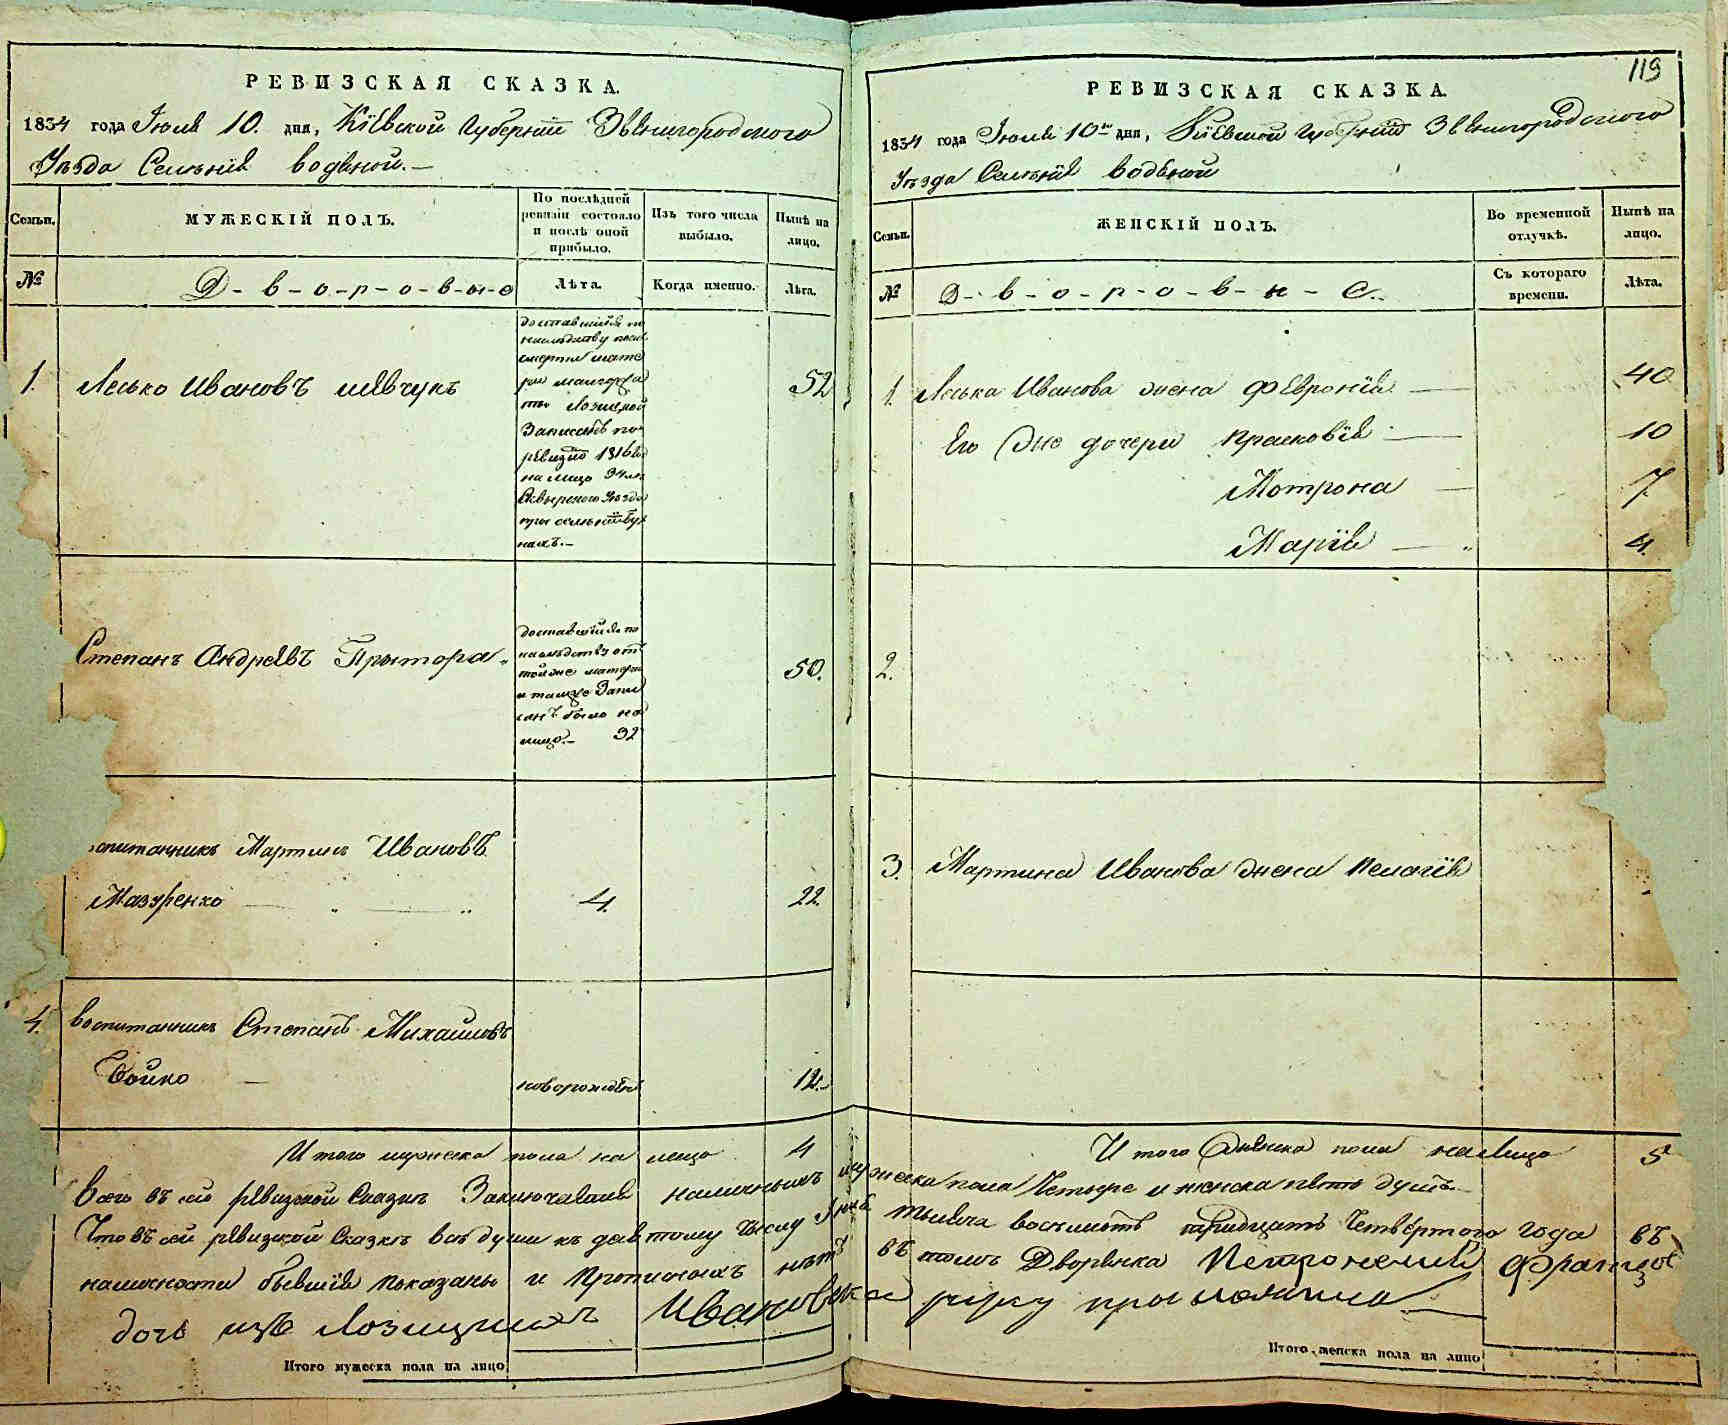 РЕВИЗСКАЯ СКАЗКА.
1834 года Июля 10. дня, Кіевской Губерніи Звенигородского
Уѣзда Селенія Водяной.—
Семьи.
МУЖЕСКІЙ ПОЛЪ.
По послѣдней ревизіи состояло и послѣ оной прибыло.
Изъ того числа выбыло.
Нынѣ на лицо.
№
Д-в-о-р-о-в-ы-е
Лѣта.
Когда именно.
Лѣта.
1.
Лесько Ивановъ Шевчукъ
доставшійся по
наслѣдству послѣ
смерти мате
ри
Лозицкой
Записанъ по
ревизіи 1816
на лицо 34
Сквирского уѣзда
при селеніи
52
Степанъ Андреевъ Притора.
доставшійся по
наслѣдству отъ
той же матери
и также Запи
санъ было на
лицо.— 32
50.
спитанникъ Мартинъ Ивановъ
Мазуренко
4.
22.
4.
воспитанникъ Степанъ Михайловъ
Бойко —
новорожден
12.
Итого мужеска пола на лицо 4
Всего въ сей ревизской Сказкѣ Заключается наличныхъ
Что въ сей ревизской Сказкѣ всѣ души къ девятому числу Іюля
наличности бывшія показаны и Прописныхъ нѣтъ
дочь изъ Лозицкихъ Ивановска
Итого мужеска пола на лицо
119
РЕВИЗСКАЯ СКАЗКА.
1834 года Июля 10го дня, Кіевской Губерніи Звенигородского
Уѣзда Селенія Водяной
Семьи.
ЖЕНСКІЙ ПОЛЪ.
Во временной отлучкѣ.
Нынѣ на лицо.
№
Д-в-о-р-о-в-ы-е.
Съ котораго времени.
Лѣта.
1.
Леська Иванова жена Февронія — 40
Его Же дочери Прасковія — 10
Мотрона — 7.
Марія — 4.
2.
3. Мартина Иванова жена Пелагія
Итого Женска пола на Лицо 5
мужеска пола Четыре и женска пять душъ.—
тысяча восемьсотъ тридцать Четвертого года въ
въ томъ Дворянка Петронелия Францо
руку приложила
Итого женска пола на лицо